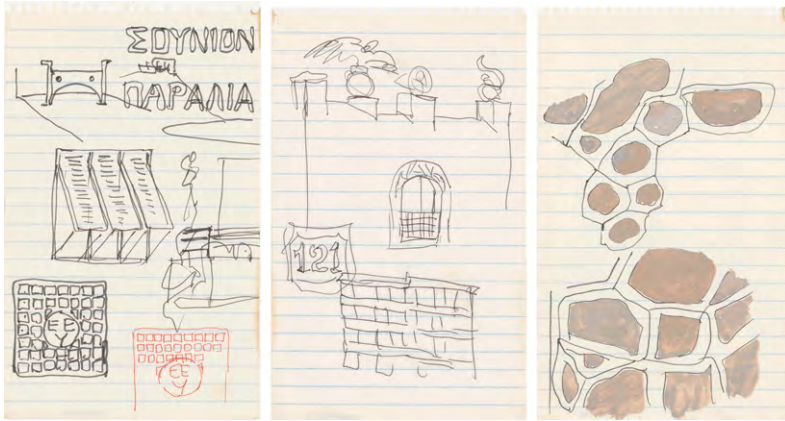 ΣΟΥΝΙΟΝ
ΠΑΡΑΛΙΑ
ΕΕ
Υ
ΕΕ
Υ
121